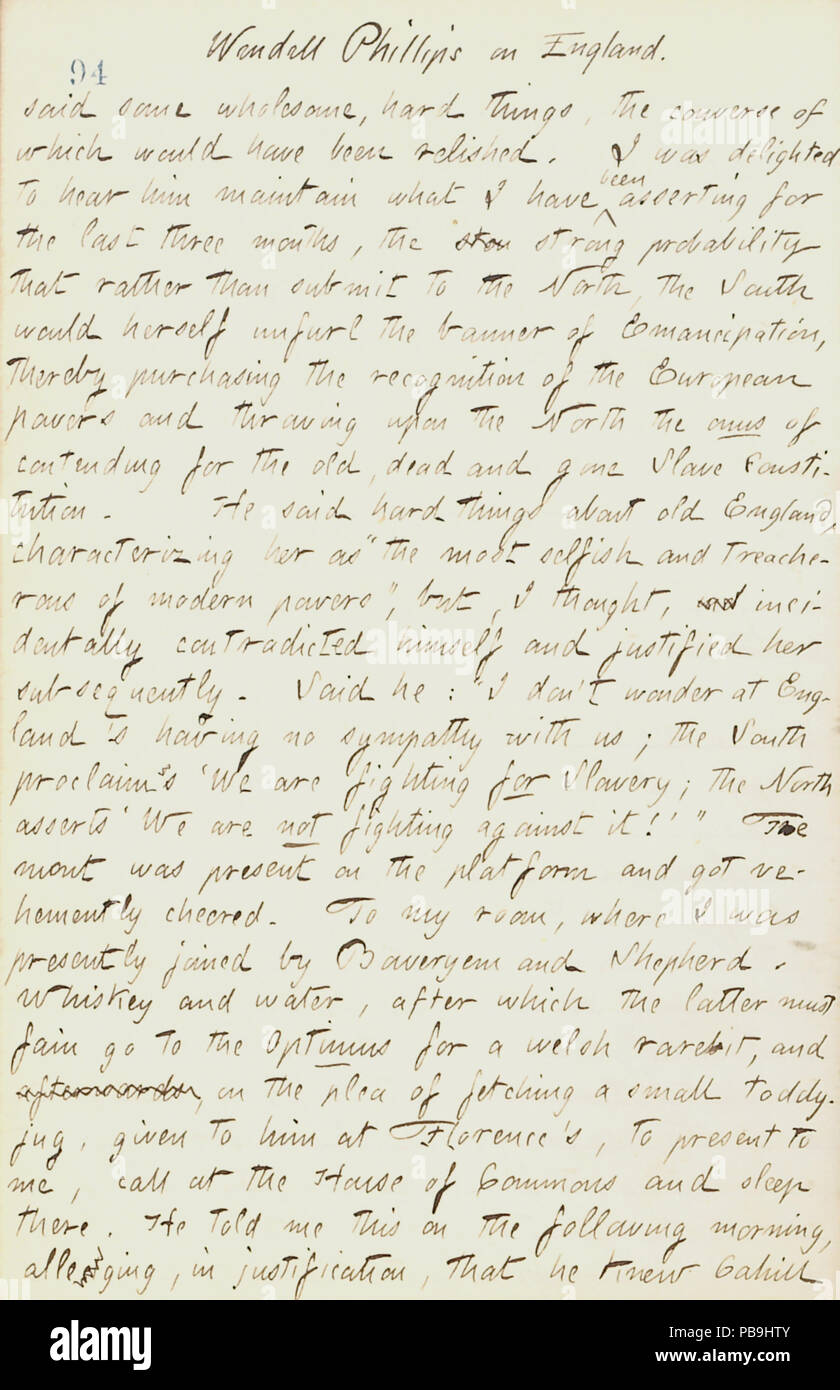 Wendell Phillips on England.
94
said some wholesome, hard things, the converse of
which would have been relished. I was delighted
to hear him maintain what I have been asserting for
the last three months, the stron strong probability
that rather than submit to the North, the South
would herself unfurl the banner of Emancipation,
thereby purchasing the recognition of the European
powers and throwing upon the North the onus of
contending for the old, dead and gone Slave Consti-
tution. He said hard things about old England,
characterizing her as "the most selfish and treache-
rous of modern powers", but, I thought, and inci-
dentally contradicted himself and justified her
subsequently. Said he: "I don't wonder at Eng-
land's having no sympathy with us; the South
proclaims 'We are fighting for Slavery; the North
asserts 'We are not fighting against it!'" Fre
mont was present on the platform and got ve-
hemently cheered. To my room, where I was
presently joined by Boweryem and Shepherd.
Whiskey and water, after which the latter must
fain go to the Optimus for a welsh rarebit, and
afterwards, on the plea of fetching a small toddy-
jug, given to him at Florence's, to present to
me, call at the House of Commons and sleep
there. He told me this on the following morning,
alleging, in justification, that he knew Cahill
alamy
Image ID: PB9HTY
www.alamy.com